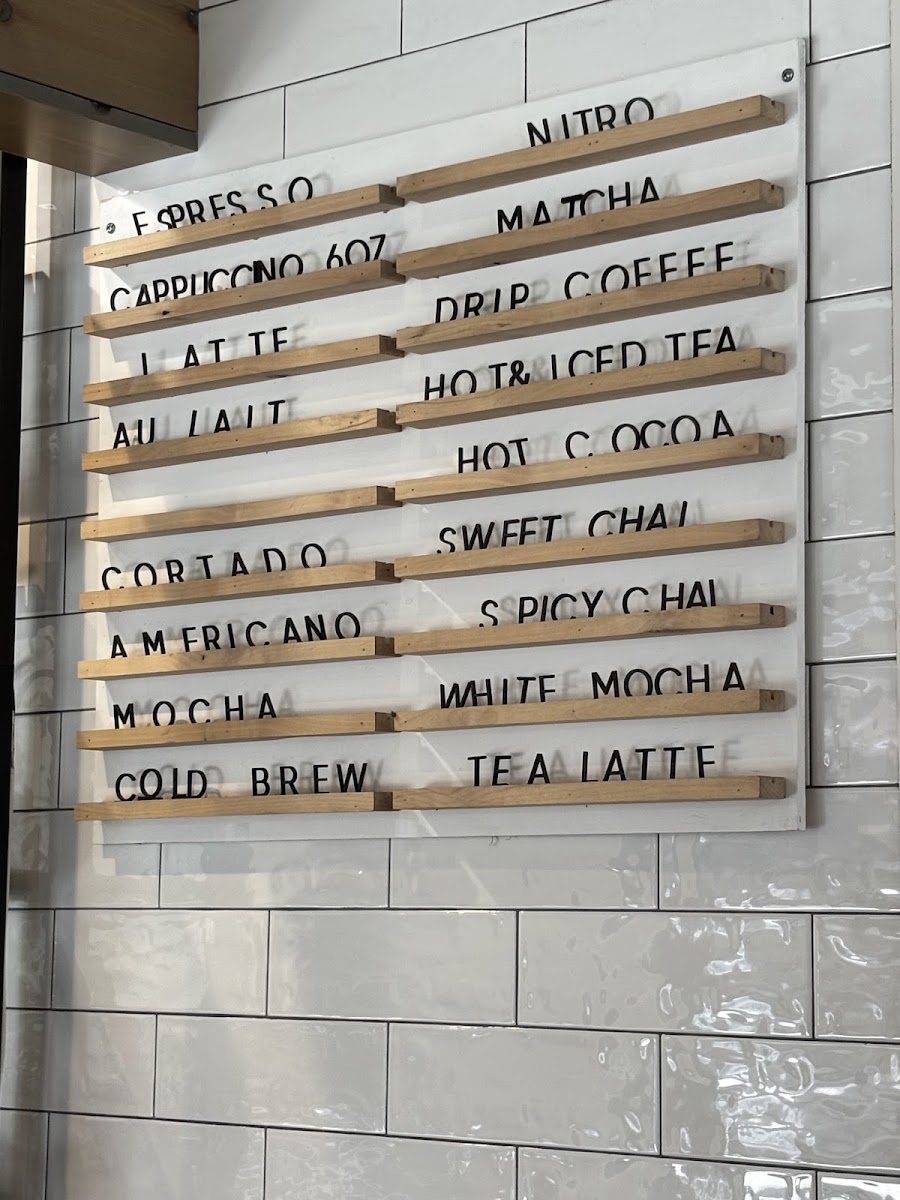 ESPRESSO
CAPPUCCINO 6OZ
LATTE
AU LAIT
CORTADO
AMERICANO
MOCHA
COLD BREW
NITRO
MATCHA
DRIP COFFEE
HOT & ICED TEA
HOT COCOA
SWEET CHAI
SPICY CHAI
WHITE MOCHA
TEA LATTE